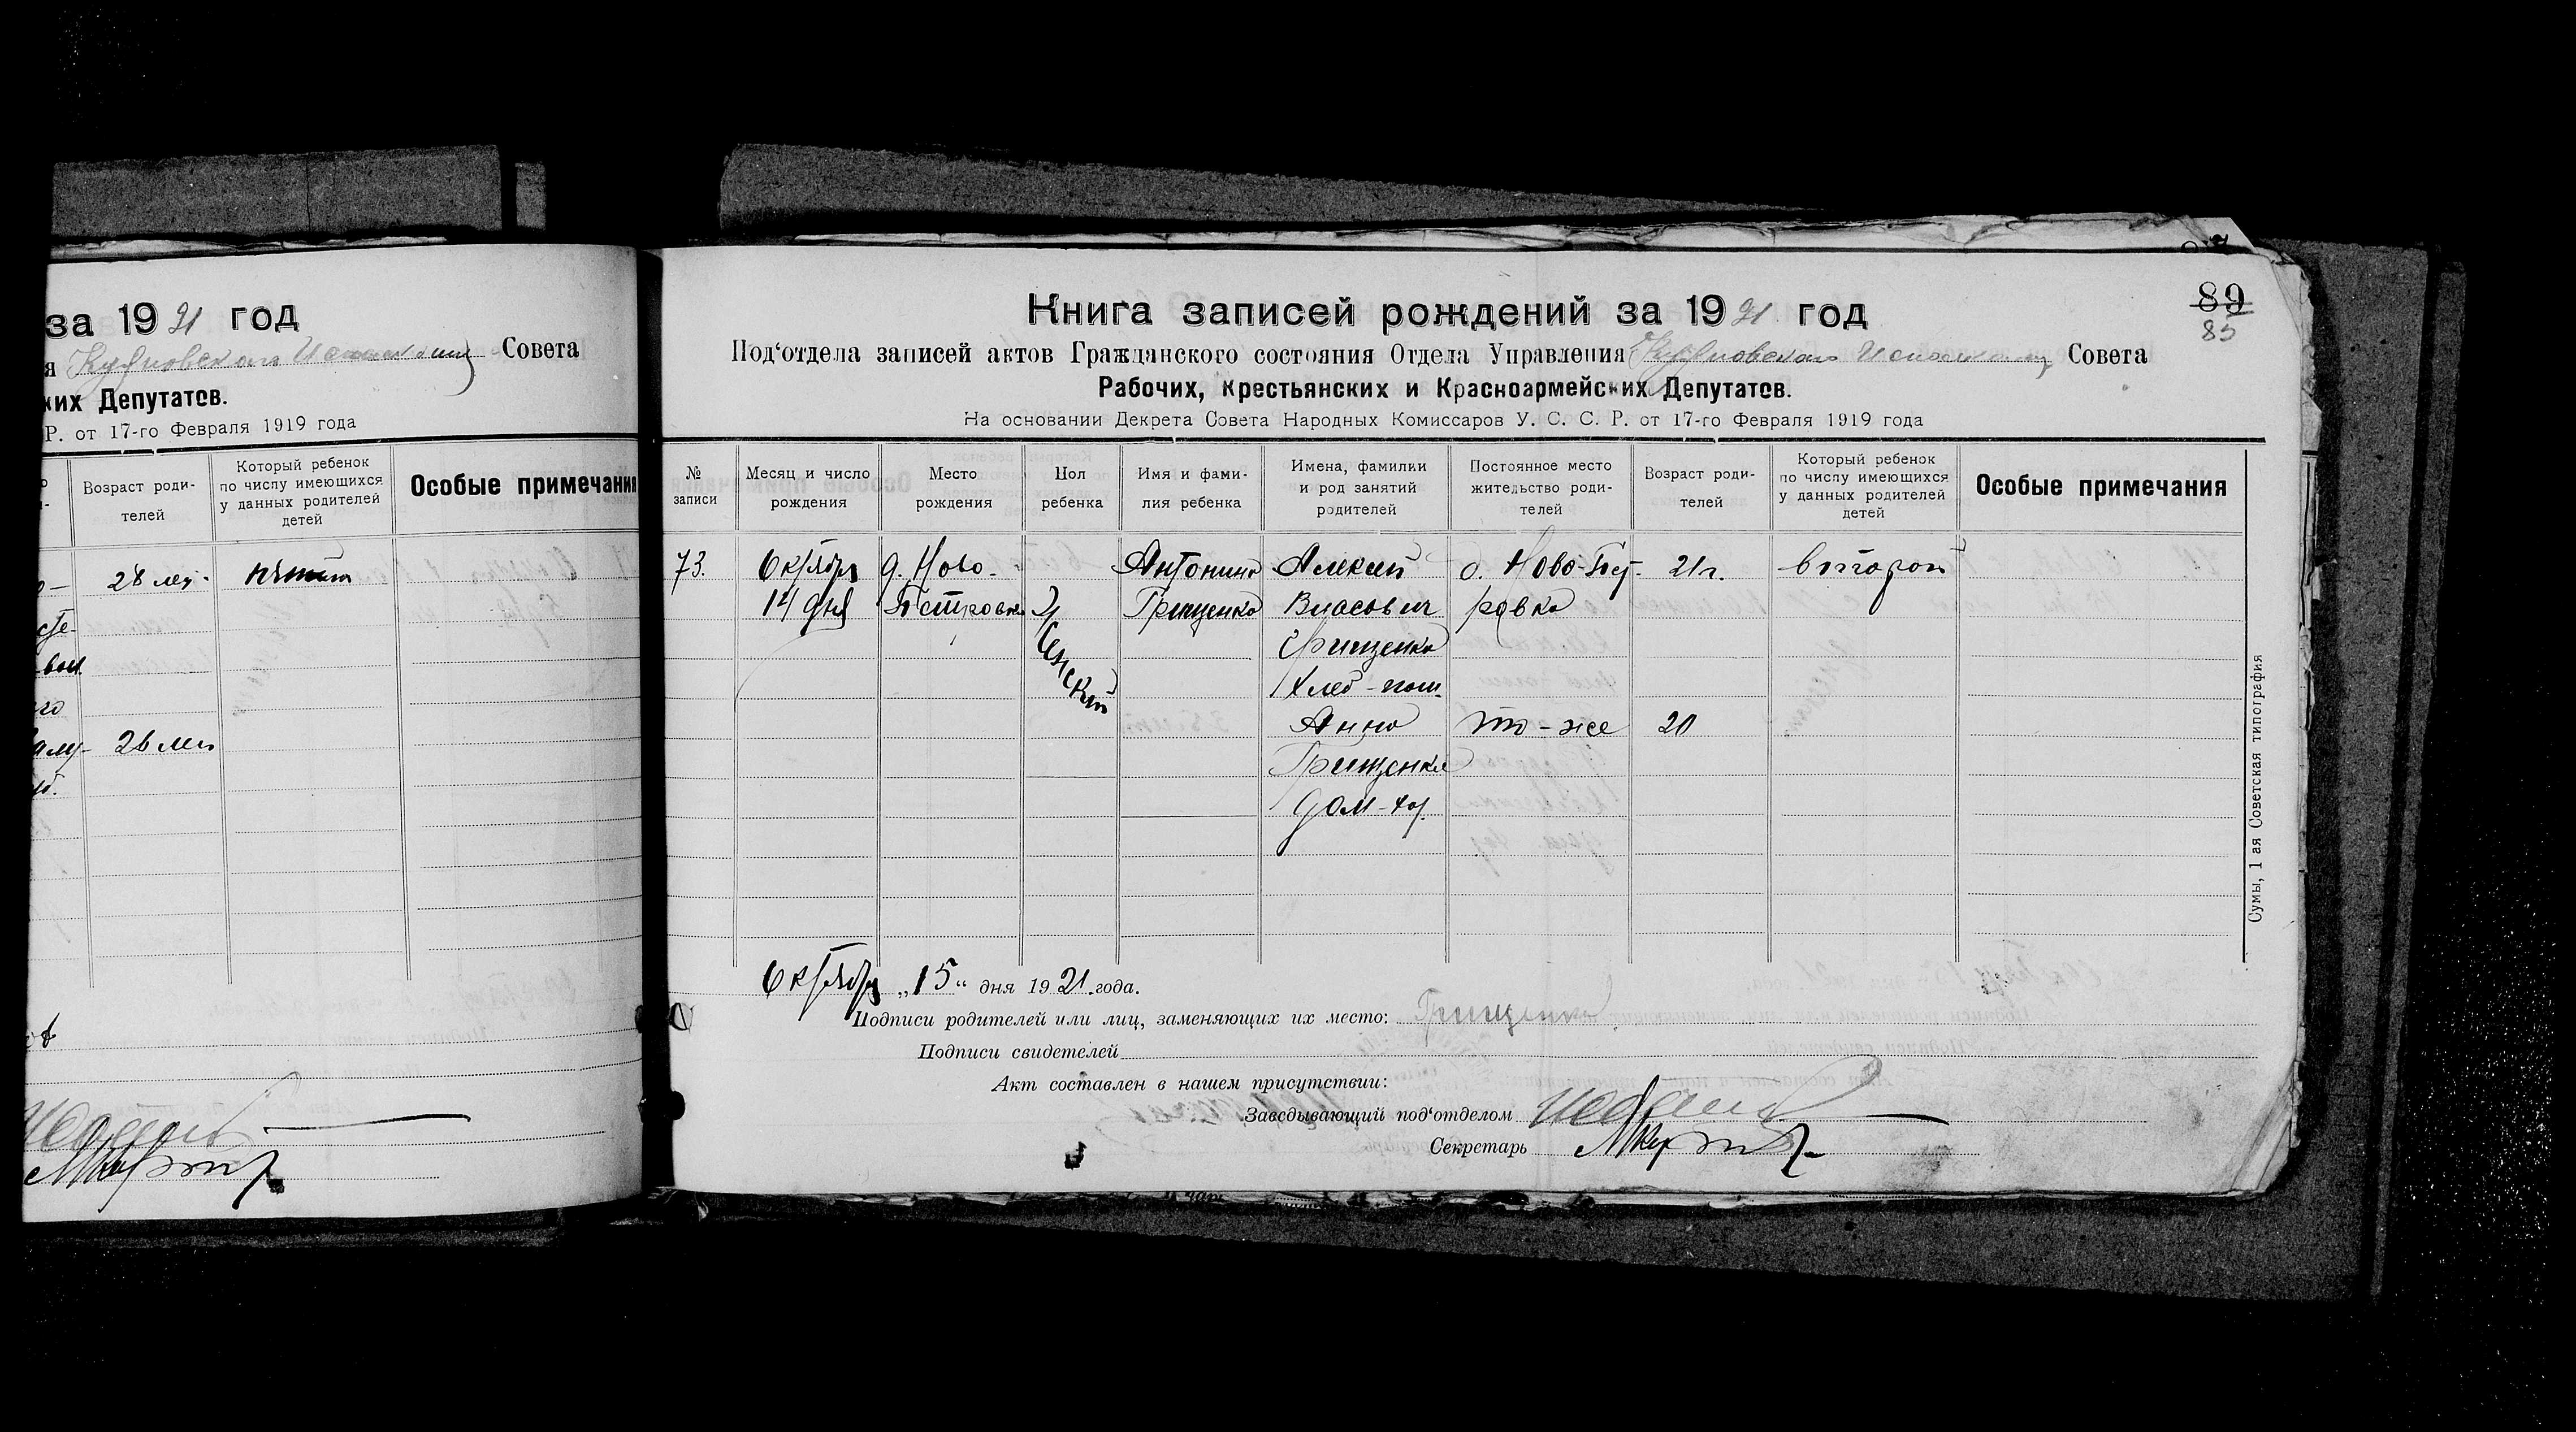 за 1921 год
я Совета
ких Депутатов.
Р. от 17-го Февраля 1919 года
Возраст роди-
телей
Который ребенок
по числу имеющихся
у данных родителей
детей
Особые примечания
28 лет.
пятый
26 лет
89
85
Книга записей рождений за 1921 год
Под‘отдела записей актов Гражданского состояния Отдела Управления Совета
Рабочих, Крестьянских и Красноармейских Депутатов.
На основании Декрета Совета Народных Комиссаров У. С. С. Р. от 17-го Февраля 1919 года
№
записи
Месяц и число
рождения
Место
рождения
Пол
ребенка
Имя и фами-
лия ребенка
Имена, фамилии
и род занятий
родителей
Постоянное место
жительство роди-
телей
Возраст роди-
телей
Который ребенок
по числу имеющихся
у данных родителей
детей
Особые примечания
73.
Октября
14 дня
д. Ново-
Петровка
Женский
Антонина
Грищенко
Алексей
Власович
Грищенко
Хлеб-паш.
Анна
Грищенко
дом-хоз.
д. Ново-Пет-
ровка
то-же
21 г.
20
второй
Октября „15“ дня 1921 года.
Подписи родителей или лиц, заменяющих их место: Грищенко
Подписи свидетелей
Акт составлен в нашем присутствии:
Заведывающий под‘отделом
Секретарь
Сумы, 1 ая Советская типография